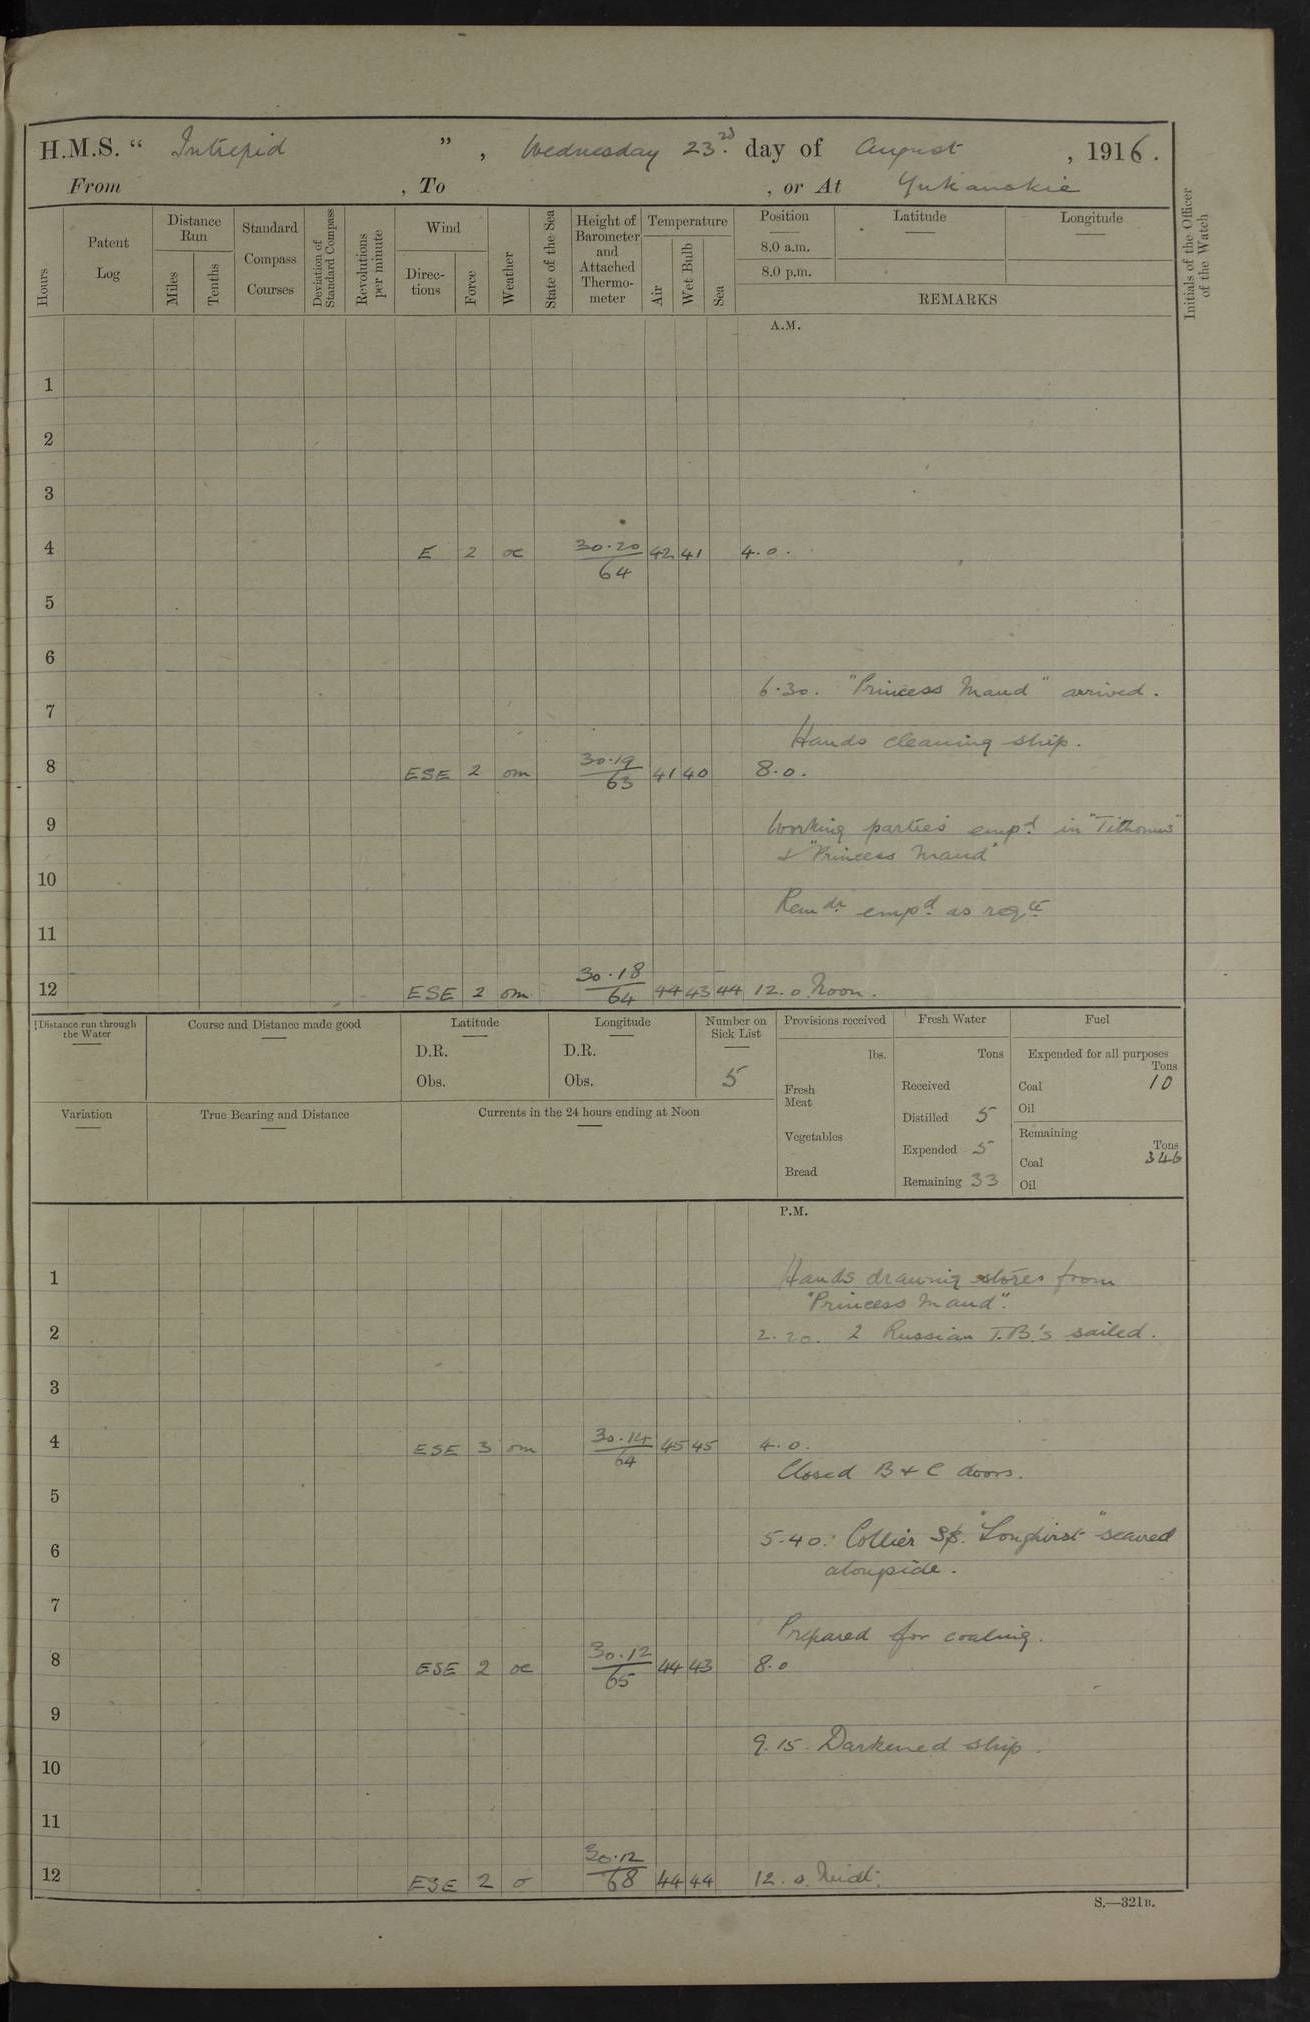 H.M.S. “ Intrepid ” , Wednesday 23rd. day of August , 1916.
From , To , or At Yukanskie
Hours
Patent Log
Distance Run
Miles
Tenths
Standard Compass Courses
Deviation of Standard Compass
Revolutions per minute
Wind
Direc-tions
Force
Weather
State of the Sea
Height of Barometer and Attached Thermo-meter
Temperature
Air
Wet Bulb
Sea
Position
8.0 a.m.
8.0 p.m.
Latitude
Longitude
REMARKS
Initials of the Officer of the Watch
A.M.
1
2
3
4 E 2 oc 30.20/64 42 41 4.0.
5
6
6.30. "Princess Maud" arrived.
7
Hands cleaning ship.
8 ESE 2 om 30.19/63 41 40 8.0.
9 Working parties empd. in "Tithonus"
& "Princess Maud"
10
Remdr. empd. as reqte
11
12 ESE 2 om 30.18/64 44 43 44 12.0 Noon.
Distance run through the Water
Course and Distance made good
Latitude
D.R.
Obs.
Longitude
D.R.
Obs.
Number on Sick List
5
Provisions received
lbs.
Fresh Meat
Vegetables
Bread
Fresh Water
Tons
Received
Distilled 5
Expended 5
Remaining 33
Fuel
Expended for all purposes
Tons
Coal 10
Oil
Remaining
Tons
Coal 346
Oil
Variation
True Bearing and Distance
Currents in the 24 hours ending at Noon
P.M.
1 Hands drawing stores from
"Princess Maud".
2 2.20. 2 Russian T.B.'s sailed.
3
4 ESE 3 om 30.14/64 45 45 4.0.
Closed B & C doors.
5
5.40. Collier SS. "Longhirst" secured
6
alongside.
7
Prepared for coaling.
8 ESE 2 oc 30.12/65 44 43 8.0
9
9.15. Darkened ship.
10
11
12 ESE 2 o 30.12/68 44 44 12.0. Midt.
S.—321B.